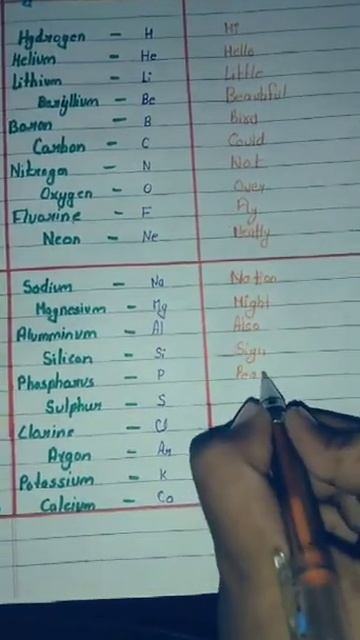 Hydrogen - H Hi
Helium - He Hello
Lithium - Li Little
Beryllium - Be Beautiful
Boron - B Bird
Carbon - C Could
Nitrogen - N Not
Oxygen - O Over
Fluorine - F Fly
Neon - Ne Neatly
Sodium - Na Nation
Magnesium - Mg Might
Alumminum - Al Also
Silicon - Si Sign
Phosphorus - P Pea
Sulphur - S
Clorine - Cl
Argon - Ar
Potassium - K
Calcium - Ca